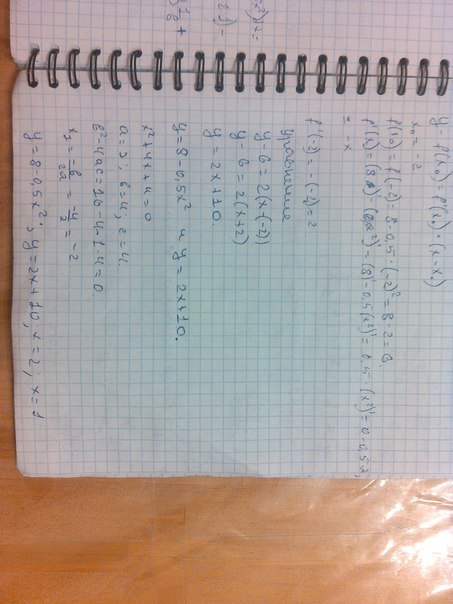 y - f(x₀) = f'(x₀) · (x - x₀)
x₀ = -2
f(x₀) = f(-2) = 8 - 0,5 · (-2)² = 8 - 2 = 6.
= -x
f'(-2) = -(-2) = 2
Уравнение
y - 6 = 2(x-(-2))
y - 6 = 2(x+2)
y = 2x + 10.
y = 8 - 0,5x² и y = 2x + 10.
x² + 4x + 4 = 0
a = 1; b = 4; c = 4.
b² - 4ac = 16 - 4·1·4 = 0
x₁ = -b/2a = -4/2 = -2
y = 8 - 0,5x²; y = 2x + 10;